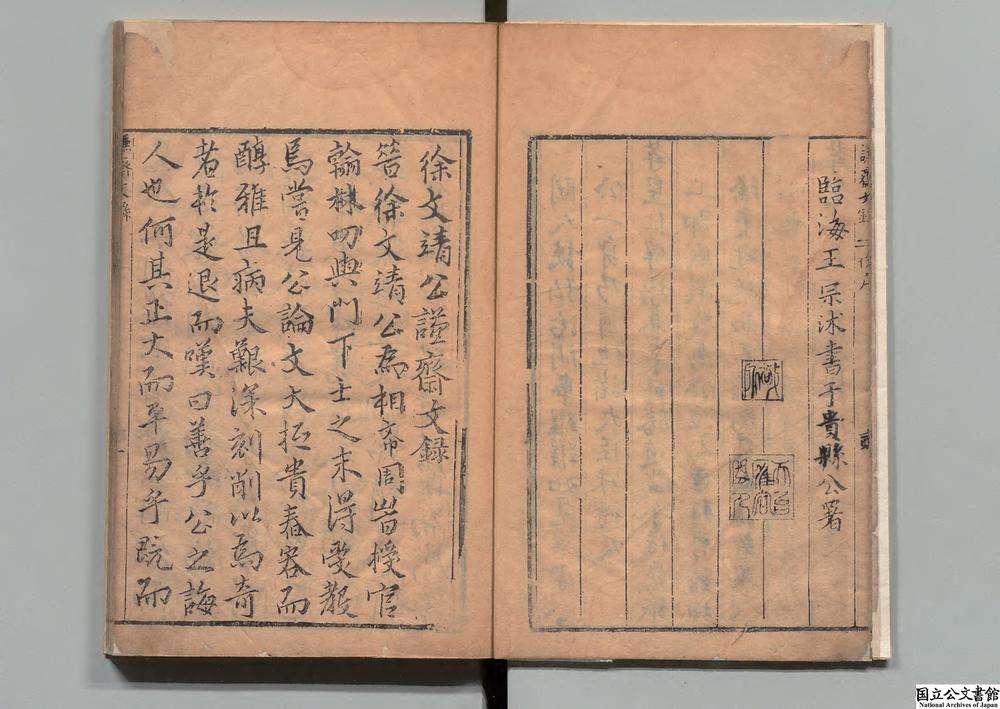 臨海王宗沐書于貴縣公署
徐文靖公謙齋文録
昔徐文靖公為相帝周時授官
翰林叨與門下士之末得受教
焉嘗見公論文大抵貴舂容而
醇雅且病夫艱深刻削以為奇
者於是退而嘆曰善乎公之誨
人也何其正大而平易乎既而
国立公文書館
National Archives of Japan